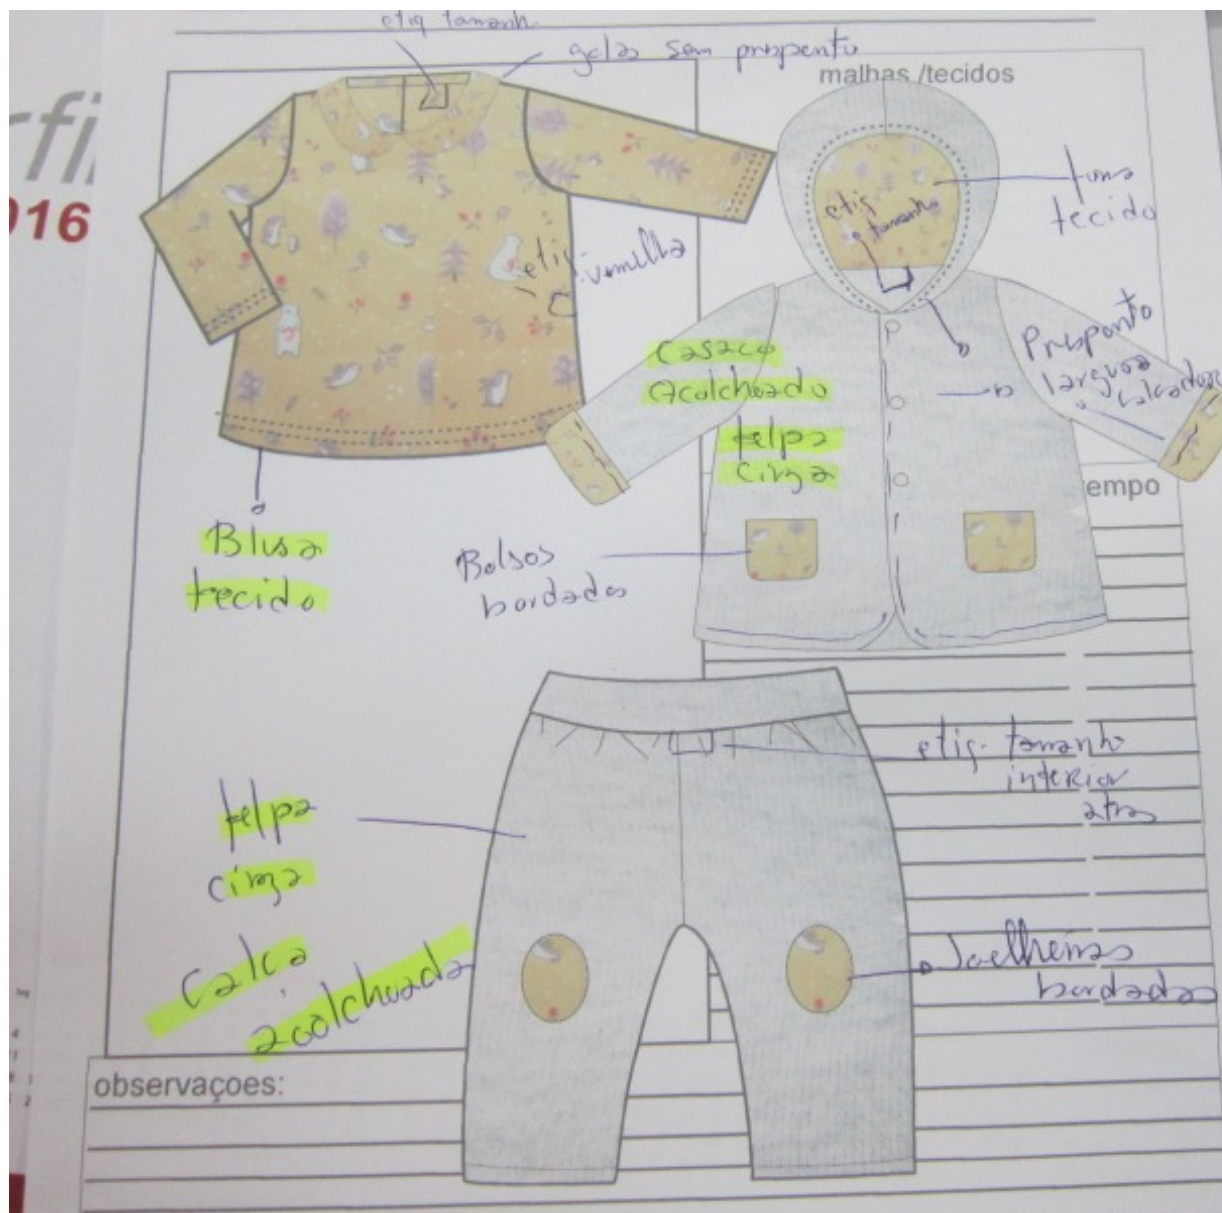 rfi
016
etiq tamanh
gola sem prospento
malhas /tecidos
etiq. vermelha
etiq
tamanho
tecido
Casaco
acolchoado
felpa
cinza
Prosponto
largura
empo
Blusa
tecido
Bolsos
bordados
etiq. tamanho
interior
atras
felpa
cinza
calca
acolchoada
Joelheiras
bordadas
observaçoes: